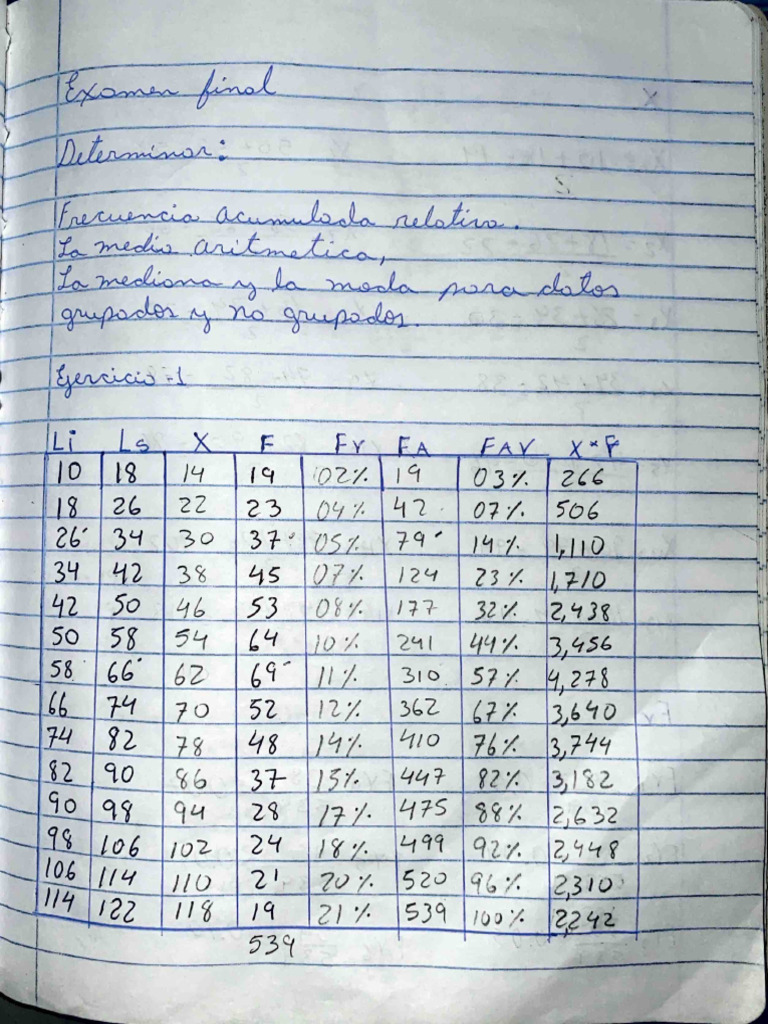 Examen final
Determinar:
Frecuencia acumulada relativa.
La media aritmetica,
La mediana y la moda para datos
grupados y no grupados.
Ejercicio-1
Li Ls X F Fr FA FAr X*F
10 18 14 19 02% 19 03% 266
18 26 22 23 04% 42 07% 506
26 34 30 37 05% 79 14% 1,110
34 42 38 45 07% 124 23% 1,710
42 50 46 53 08% 177 32% 2,438
50 58 54 64 10% 241 44% 3,456
58 66 62 69 11% 310 57% 4,278
66 74 70 52 12% 362 67% 3,640
74 82 78 48 14% 410 76% 3,744
82 90 86 37 15% 447 82% 3,182
90 98 94 28 17% 475 88% 2,632
98 106 102 24 18% 499 92% 2,448
106 114 110 21 20% 520 96% 2,310
114 122 118 19 21% 539 100% 2,242
539